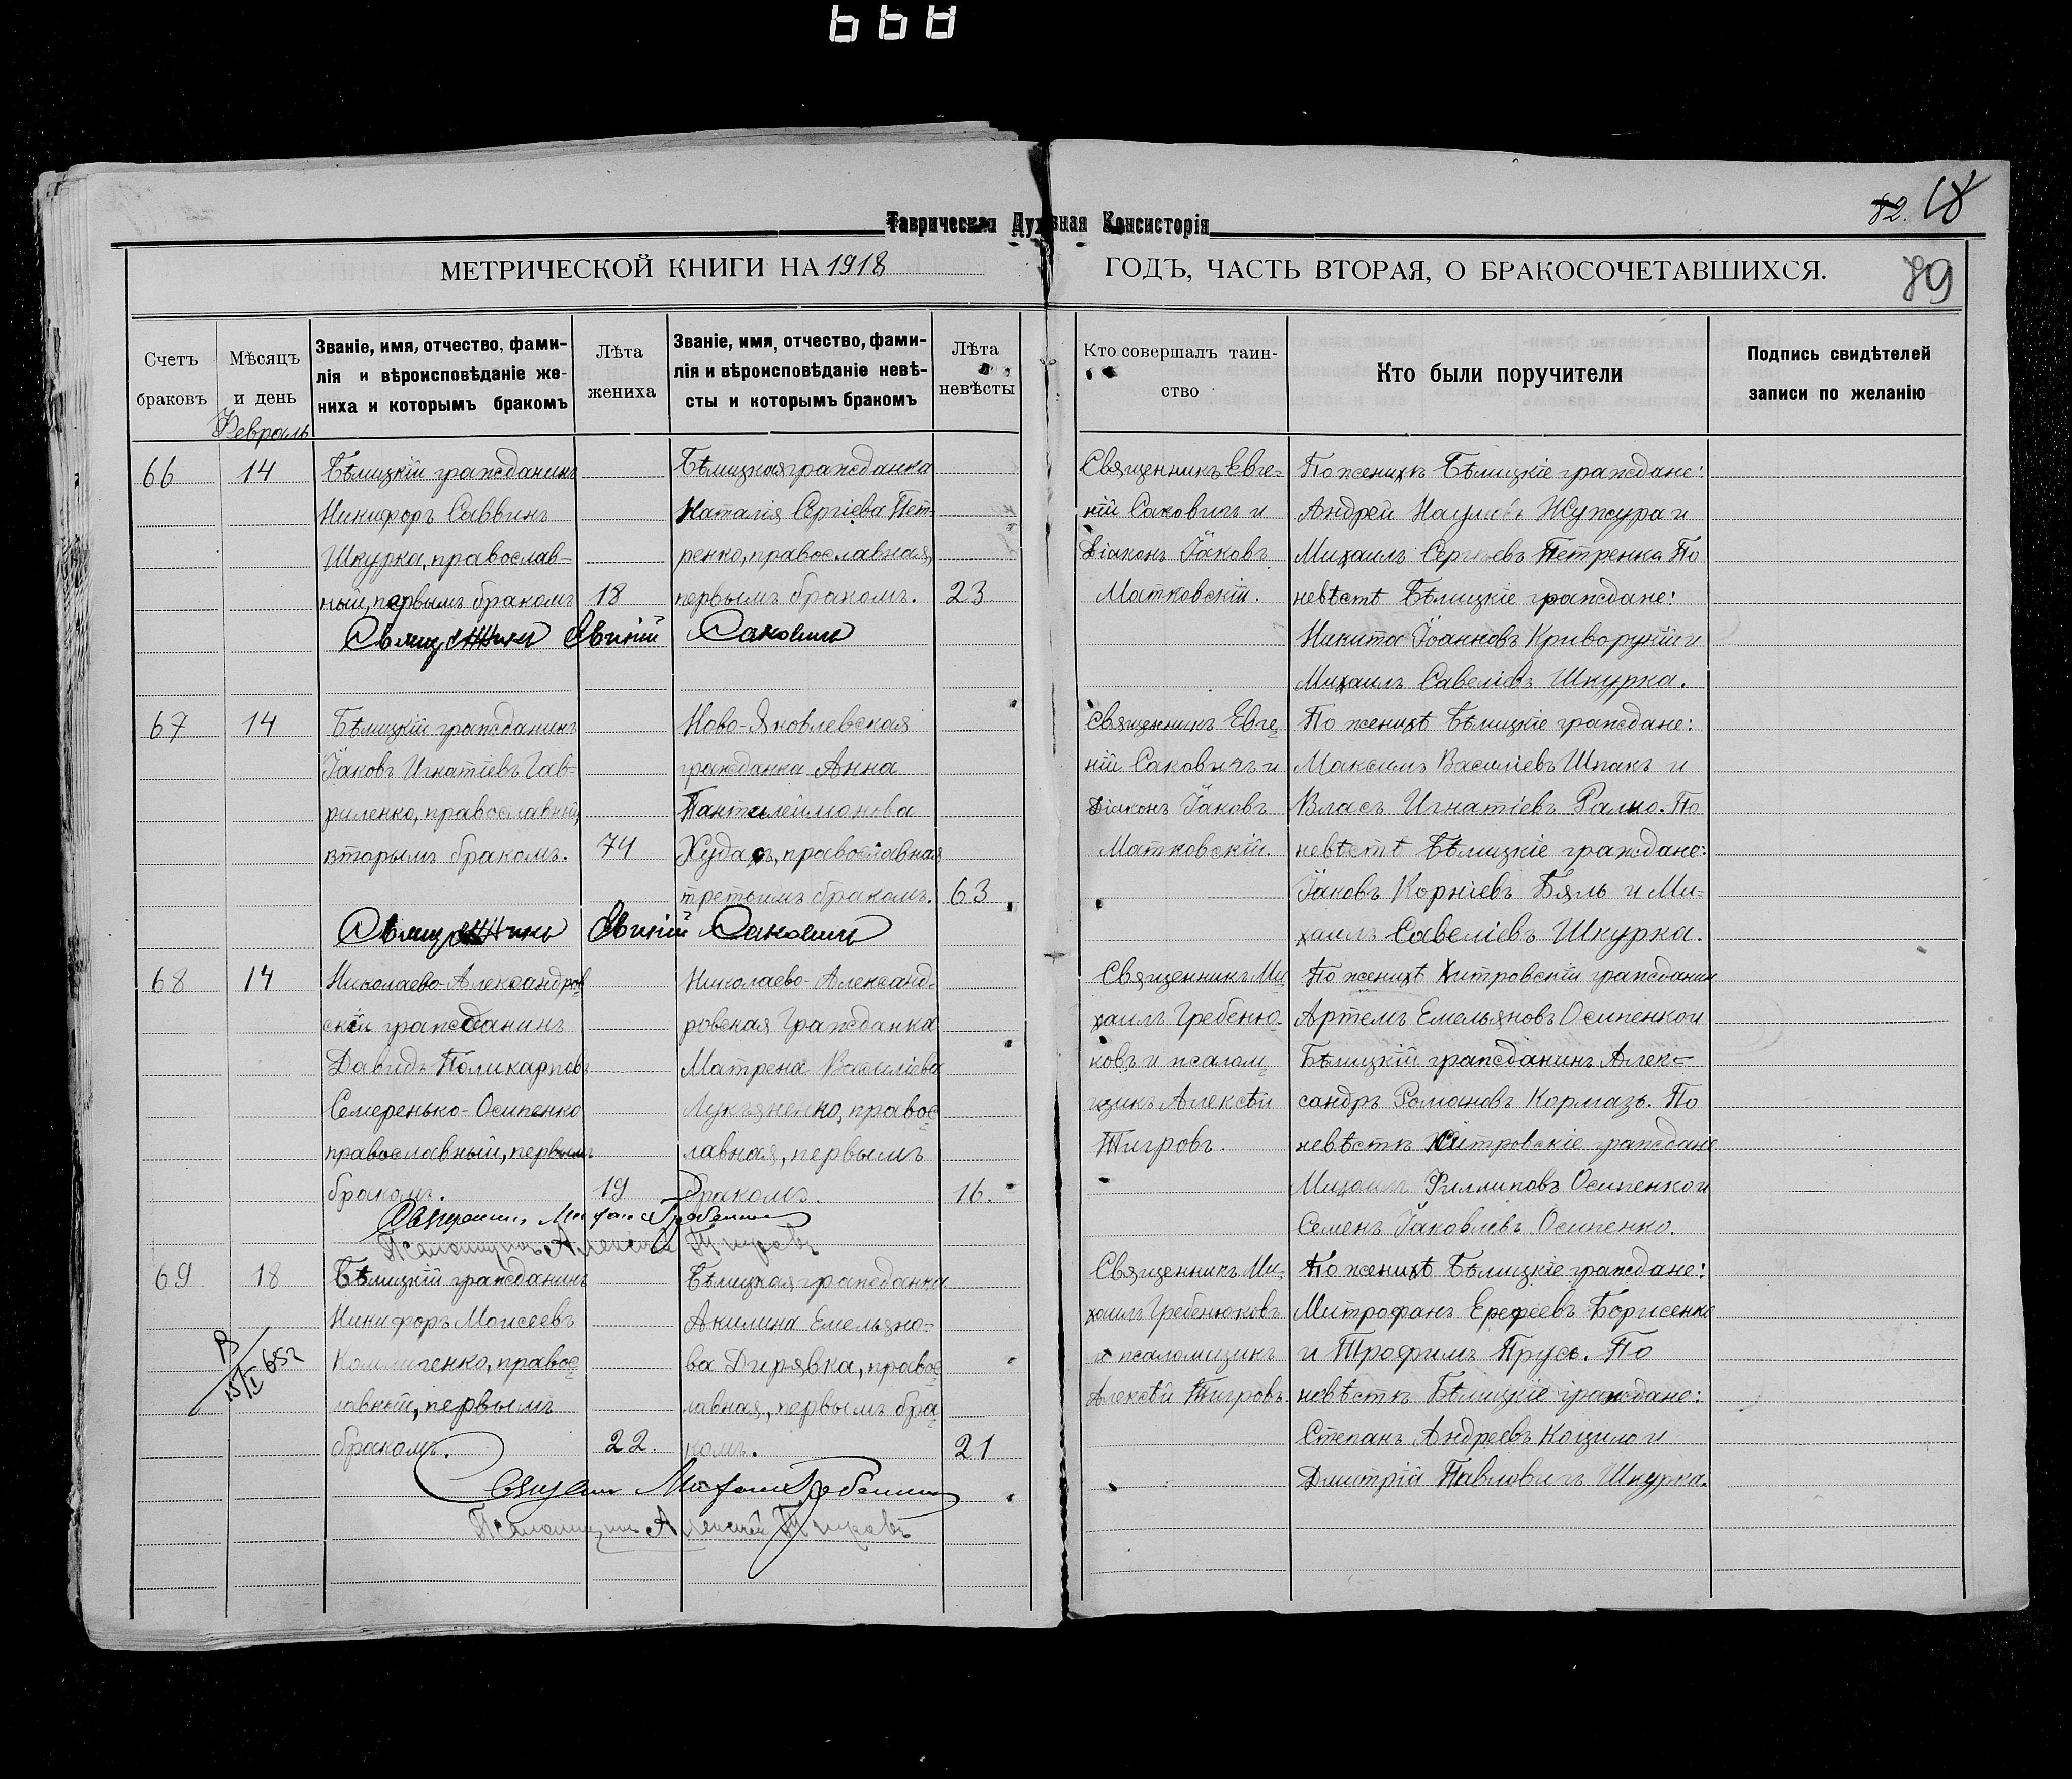 82. 18
Таврическая Духовная Консисторія
МЕТРИЧЕСКОЙ КНИГИ НА 1918 ГОДЪ, ЧАСТЬ ВТОРАЯ, О БРАКОСОЧЕТАВШИХСЯ.
89
Счетъ браковъ
Мѣсяцъ и день
Званіе, имя, отчество, фами-
лія и вѣроисповѣданіе же-
ниха и которымъ бракомъ
Лѣта жениха
Званіе, имя, отчество, фами-
лія и вѣроисповѣданіе невѣ-
сты и которымъ бракомъ
Лѣта невѣсты
Кто совершалъ таин-
ство
Кто были поручители
Подпись свидѣтелей
записи по желанію
Февраль
66
14
Бѣлицкій гражданинъ
Никифоръ Саввинъ
Шкурка, православ-
ный, первымъ бракомъ
18
Бѣлицкая гражданка
Наталія Сергіева Пет-
ренко, православная,
первымъ бракомъ.
23
Священникъ Евге-
ній Саковичъ и
Діаконъ Іаковъ
Матковскій.
По женихѣ Бѣлицкіе граждане:
Андрей Наумовъ Жужура и
Михаилъ Сергѣевъ Петренко По
невѣстѣ Бѣлицкіе граждане:
Никита Іоанновъ Криворукій и
Михаилъ Савеліевъ Шкурка.
Священникъ Евгеній Саковичъ
67
14
Бѣлицкій гражданинъ
Іаковъ Игнатіевъ Гав-
риленко, православный,
вторымъ бракомъ.
74
Ново-Яковлевская
гражданка Анна
Пантелеймонова
православная
третьимъ бракомъ.
63
Священникъ Евге-
ній Саковичъ и
Діаконъ Іаковъ
Матковскій.
По женихѣ Бѣлицкіе граждане:
Максимъ Василіевъ Шпакъ и
Власъ Игнатіевъ Ралко. По
невѣстѣ Бѣлицкіе граждане:
Іаковъ Корніевъ Бяль и Ми-
хаилъ Савеліевъ Шкурка.
Священникъ Евгеній Саковичъ
68
14
Николаево-Александров-
скій гражданинъ
Давидъ Поликарповъ
Семеренько-Осипенко
православный, первымъ
бракомъ.
19
Николаево-Александ-
ровская Гражданка
Матрена Василіева
Лукьяненко, правос-
лавная, первымъ
бракомъ.
16.
Священникъ Ми-
хаилъ Гребеню-
ковъ и псалом-
щикъ Алексѣй
Тигровъ.
По женихѣ Хитровскій гражданинъ
Артемъ Емельяновъ Осипенко и
Бѣлицкій гражданинъ Алек-
сандръ Романовъ Кормазъ. По
невѣстѣ Хитровскіе граждане
Михаилъ Филлиповъ Осипенко и
Семенъ Іаковлевъ Осипенко.
Священникъ Михаилъ Гребенюковъ
Псаломщикъ Алексѣй Тигровъ
69
18
Бѣлицкій гражданинъ
Никифоръ Моисеевъ
правос-
лавный, первымъ
бракомъ.
22.
Бѣлицкая гражданка
Акилина Емельяно-
ва Дирявка, правос-
лавная, первымъ бра-
комъ.
21
Священникъ Ми-
хаилъ Гребенюковъ
и псаломщикъ
Алексѣй Тигровъ
По женихѣ Бѣлицкіе граждане:
Митрофанъ Ерефеевъ Борисенко
и Трофимъ Прусъ. По
невѣстѣ Бѣлицкіе граждане:
Степанъ Андреевъ Коцило и
Дмитрій Павловичъ Шкурка.
Священникъ Михаилъ Гребенюковъ
Псаломщикъ Алексѣй Тигровъ